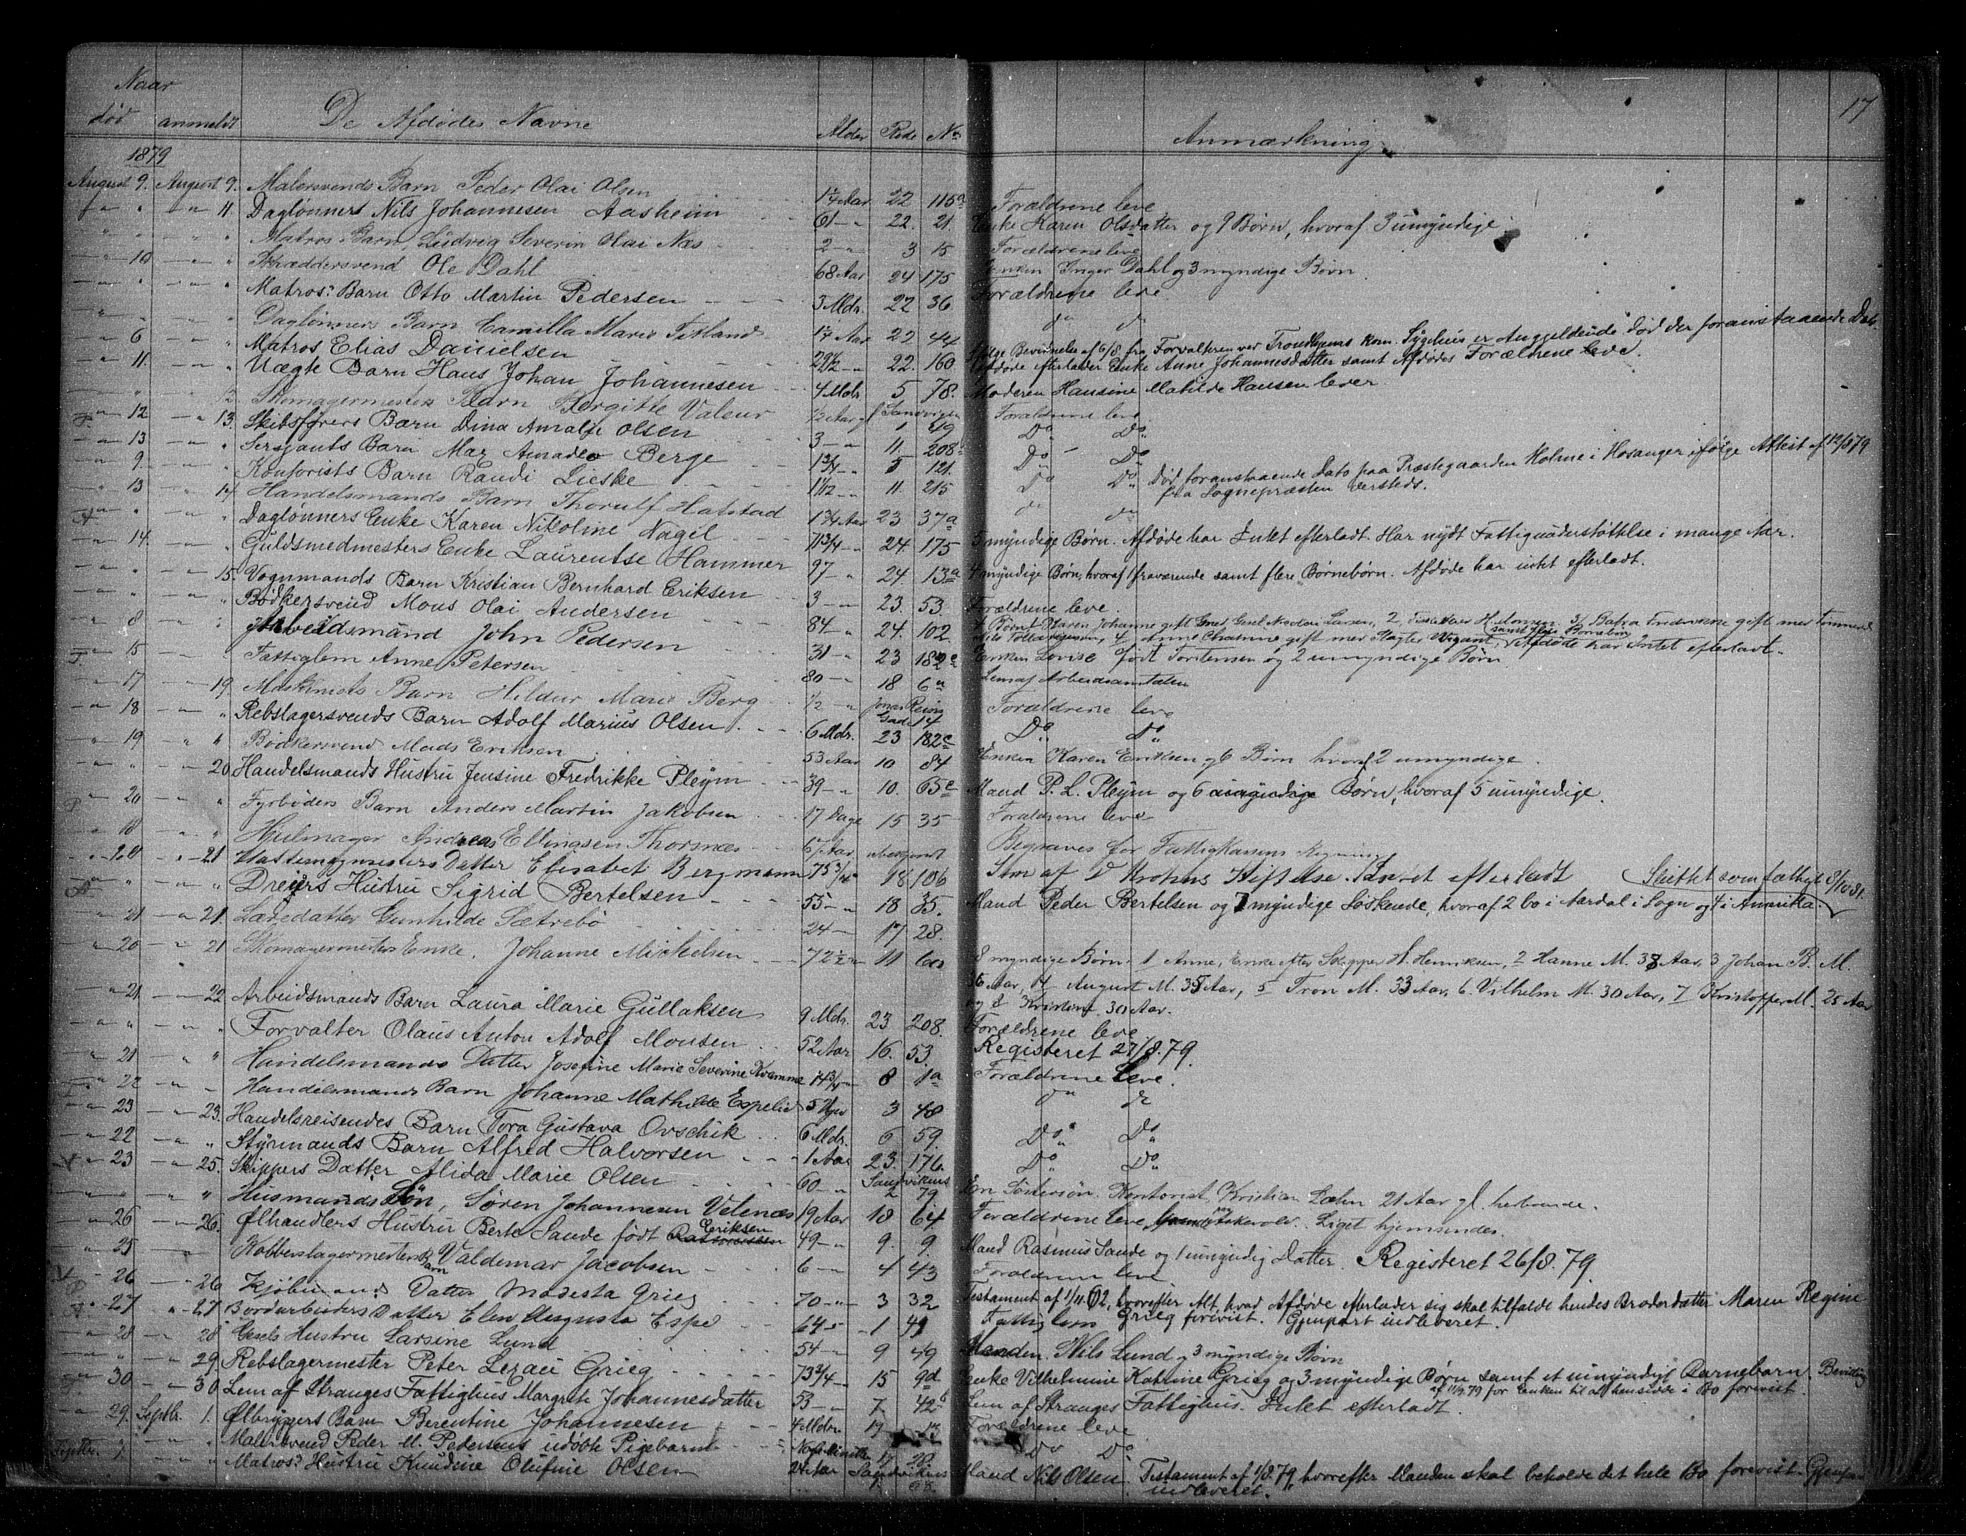 17
Naar
død anmeldt De Afdødes Navne Alder Rode No Anmærkning
1879
August 9. August 9. Malersvends Barn Peder Olai Olsen 1 1/4 Aar 22 115a Forældrene leve
" " " 11. Daglønners Nils Johannesen Aasheim 61 " 22. 21. Enke Karen Olsdatter og 9 Børn, hvoraf 3 umyndige
" " " " Matros Barn Ludvig Severin Olai Næs 2 " 3 15 Forældrene leve
" 10 " " Skræddersvend Ole Dahl 68 Aar 24 175 Enken Inger Dahl og 3 myndige Børn
" " " " Matros: Barn Otto Martin Pedersen 3 Mdr. 22 36 Forældrene leve
" " " " Daglønners Barn Camilla Marie Titland Aar 22 44 do do
" 6 " " Matros Elias Danielsen 29 1/2 " 22. 160 Ifølge Bevidnelse af 6/8 fra Forvalteren ved Trondhjems kom. Sygehus er Angjeldende død der foranstaaende Dato.
Afdøde efterlader Enke Anne Johannesdatter samt Afdødes Forældrene leve.
" 11. " " Uægte Barn Hans Johan Johannesen 4 Mdr. 5 78. Moderen Hansine Matilde Hansen lever
" " " 12. Skomagermesters Barn Bergitte Valeur 1/2 Aar gl Sandvigen 1 49 Forældrene leve
" 12 " 13. Skibsførers Barn Dina Amalie Olsen 3 " 11 208 Do Do
" 13 " " Sersjants Barn Max Amadeo Berge 1 3/4 " 5 121. Do Do
" 9. " " Kontorists Barn Randi Lieske 1 1/12 " 11. 215 Do Do Død foranstaaende Dato paa Præstegaarden Holme i Hosanger ifølge Attest af 12/8 79
fra Sognepræsten dersteds.
" 13 " 14. Handelsmands Barn Thorulf Hatstad 1 3/4 Aar 23 37a do do
" " " " Daglønners Enke Karen Nikoline Nagel 71 3/4 " 24. 175 3 myndige Børn. Afdøde har Intet efterladt. Har nydt Fattigunderstøttelse i mange Aar.
" 14. " " Guldsmedmesters Enke Laurentse Hammer 97 " 24 13a 4 myndige Børn, hvoraf 1 fraværende samt flere Børnebørn. Afdøde har intet efterladt.
" " " 15. Vognmands Barn Kristian Bernhard Eriksen 3 " 23. 53. Forældrene leve.
" " " " Bødkersvend Mons Olai Andersen 84 " 24. 102. 4 Børn: 1 Karen Johanne gift med Larsen, 2, H. Monsen 3, gift med Tømmermand
4 Anne gift med Slagter Wigant, samt flere Børnebørn, Afdøde har Intet efterladt.
" 8 " " Arbeidsmand John Pedersen 31 " 23 182c Enken Lovise født Torstensen og 2 umyndige Børn
" 15 " " Fattiglem Anne Petersen 80 " 18 6a Lem af Arbeidsanstalten
" 17 " 19. Maskinists Barn Hildur Marie Berg 1/2 " Jonas Reins Gade 14 Forældrene leve
" 18 " " Rebslagersvends Barn Adolf Marius Olsen 6 Mdr. 23 182c Do Do
" 19 " " Bødkersvend Mads Eriksen 53 Aar 10 84 Enken Karen Eriksen og 6 Børn hvoraf 2 umyndige
" " " 20. Handelsmands Hustru Jensine Fredrikke Pleym 39 " 10. 65c Mand P. L. Pleym og 6 Børn, hvoraf 5 umyndige.
" 20 " " Fyrbøders Barn Anders Martin Jakobsen 17 Dage 15 35 Forældrene leve
" 18 " " Hjulmager Andreas Ellingsen Thormæs 67 Aar ubekjendt Begraves for Fattigkassens Regning
" 20 " 21 Datter Elisabet Bergmann 75 3/4 18 106 Lem af D Krohns Stiftelse. Intet efterladt Skiftet som fattigt 8/10 81.
" " " " Dreiers Hustru Sigrid Bertelsen 55 " 18 35. Mand Peder Bertelsen og 7 myndige Søskende, hvoraf 2 bo i Aardal i Sogn og 1 i Amerika.
" 21. " 21. Læredatter Gunhilde Sætrebø 24 " 17 28.
" 20 " 21 Skomagermesters Enke. Johanne Mikkelsen 72 1/2 " 11 60 8 myndige Børn. 1 Anne, Enke efter Skipper H. Henriksen, 2 Hanne M. 38 Aar, 3 Johan B. M.
36 Aar, 4 August M. 35 Aar, 5 Tron M. 33 Aar, 6 Vilhelm M. 30 Aar, 7 Kristoffer M. 25 Aar
og 8 Kristine 30 Aar.
" 21 " 22. Arbeidsmands Barn Laura Marie Gullaksen 9 Mdr. 23 208. Forældrene leve
" " " " Forvalter Olaus Anton Adolf Monsen 52 Aar 16. 53. Registeret 27/8. 79.
" 21 " " Handelsmands Datter Josefine Marie Severine Kvamme 14 3/4 " 8 1a Forældrene leve.
" 22 " " Handelsmands Barn Johanne Mathilde Espelid 5 Uger 3 48 do do
" 23 " 23. Handelsreisendes Barn Tora Gustava Ovschik 6 Mdr. 6 59. Do Do
" 22 " " Styrmands Barn Alfred Halvorsen 1 Aar 23. 176. Do Do
" 23 " 25. Skippers Datter Alida Marie Olsen 60 " Sandvikens 2 79 En Søstersøn. Kontorist Kristian Lahn 21 Aar gl. herboende.
" " " " Husmands Søn, Søren Johannesen Velenæs 19 Aar 18 64 Forældrene leve Askevold. Liget hjemsendes.
" 26 " 26. Ølhandlers Hustru Berte Sande født Eriksen 49 " 9. 9 Mand Rasmus Sande og 1 umyndig Datter. Registeret 26/8. 79.
" 25 " " Kobberslagermesters Barn Valdemar Jacobsen 6 " 4 43 Forældrene leve
" 26 " 26 Kjøbmands Datter Modesta Grieg 70 " 3 32 Testament af 1/11 62, hvorefter Alt, hvad Afdøde efterlader sig skal tilfalde hendes Broderdatter Maren Regine
Grieg forevist. Gjenpart indleveret.
" 27 " 27. Bordarbeiders Datter Elen Augusta Espe 64 " 1 49 Fattiglem
" 28 " 28 Gesels Hustru Larsine Lund 54 " 9 49 Manden Nils Lund og 3 myndige Børn
" " " 29. Rebslagermester Peter Lexau Grieg 73 3/4 " 15 9d Enke Vilhelmine Katrine Grieg og 3 myndige Børn samt et umyndigt Barnebarn. Bevilling
af 11/9. 79 for Enken til at hensidde i Bo forevist.
" 30 " 30. Lem af Stranges Fattighus Margrete Johannesdatter 53 " 7 42b Lem af Stranges Fattighus. Intet efterladt.
" 29. Septbr. 1. Ølbryggers Barn Berentine Johannesen 4 Mdr. 19 13 Forældrene leve
Septbr. 1 " " Malersvend Peder M. Pedersens udøbte Pigebarn 17 20 Do Do
" " " Matros: Hustru Knudine Olufine Olsen Sandvikens Mand Nils Olsen. Testament af 1/8. 79, hvorefter Manden skal beholde det hele Bo forevist. Gjenpart
indleveret.